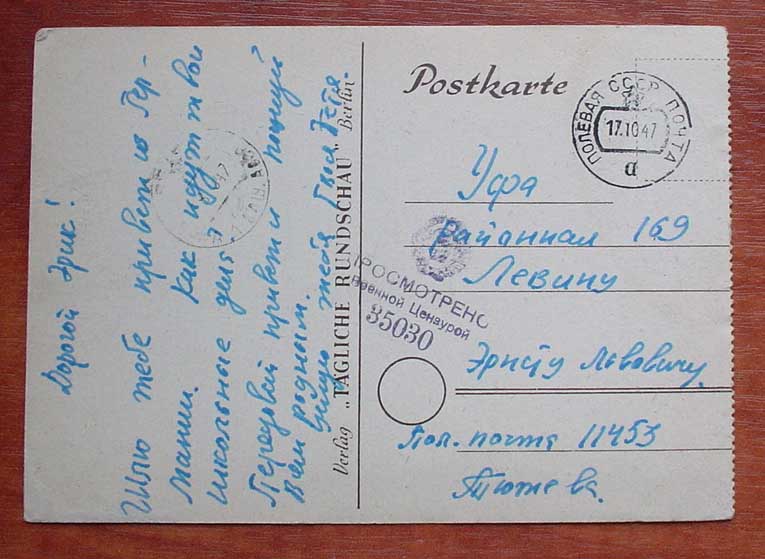 Дорогой Эрик!
Шлю тебе привет из Гер-
мании. Как идут твои
школьные дела?
Передавай привет и
всем родным.
Целую тебя Твоя Тётя
Verlag „TÄGLICHE RUNDSCHAU" Berlin
Postkarte
ПОЛЕВАЯ СССР ПОЧТА
17.10.47
а
Уфа
районная 169
Левину
ПРОСМОТРЕНО
Военной Цензурой
35030
Эрнсту Львовичу
Пол. почта 11453
Тютева.